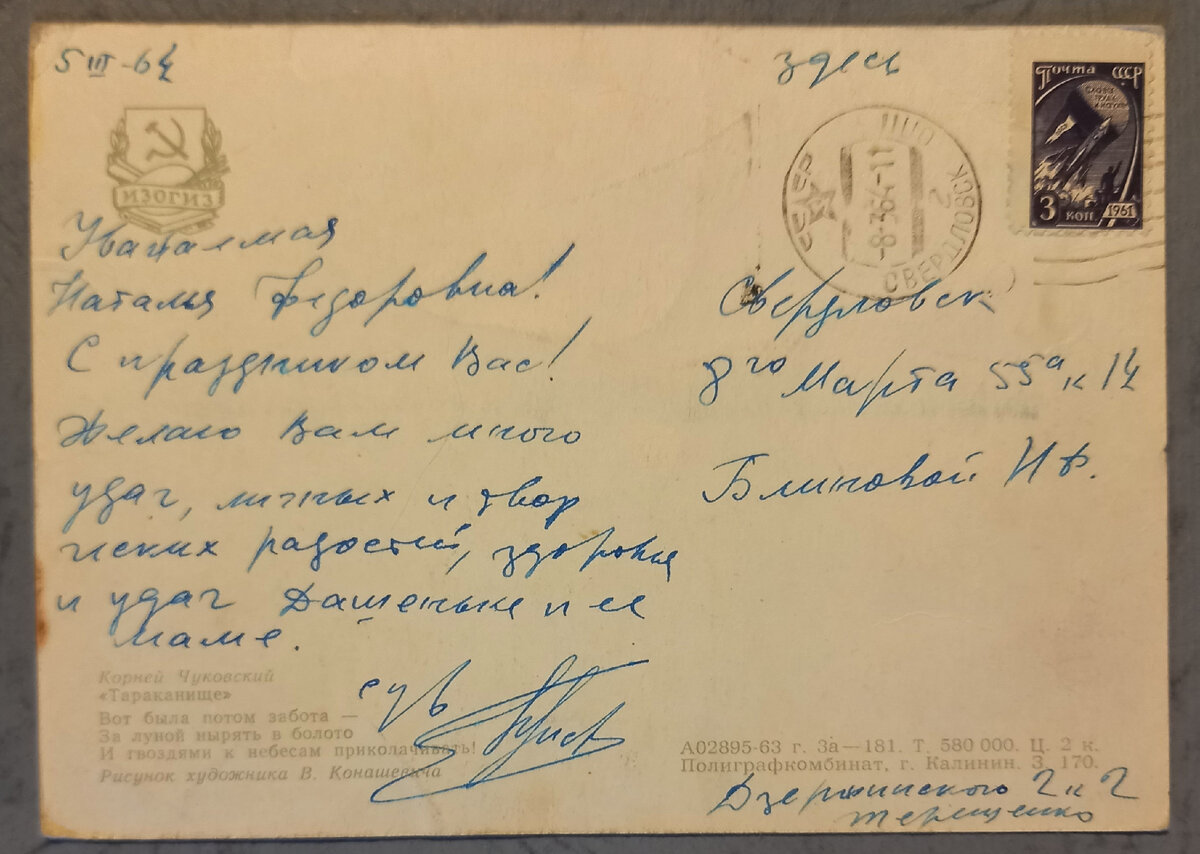 5 III - 64
здесь
Почта СССР
3 коп. 1961
СССР
СВЕРДЛОВСК 2
-8-364-11
ИЗОГИЗ
Уважаемая
Наталья Федоровна!
С праздником Вас!
Желаю Вам много
удач, личных и твор
ческих радостей, здоровья
и удач Дашеньке и ее
маме.
Свердловск
8го Марта 55а к 14
Блиновой Н Ф.
Корней Чуковский
«Тараканище»
Вот была потом забота —
За луной нырять в болото
И гвоздями к небесам приколачивать!
Рисунок художника В. Конашевича
А02895-63 г. За—181. Т. 580 000. Ц. 2 к.
Полиграфкомбинат, г. Калинин. З. 170.
Дзержинского 2 к 2
Терещенко